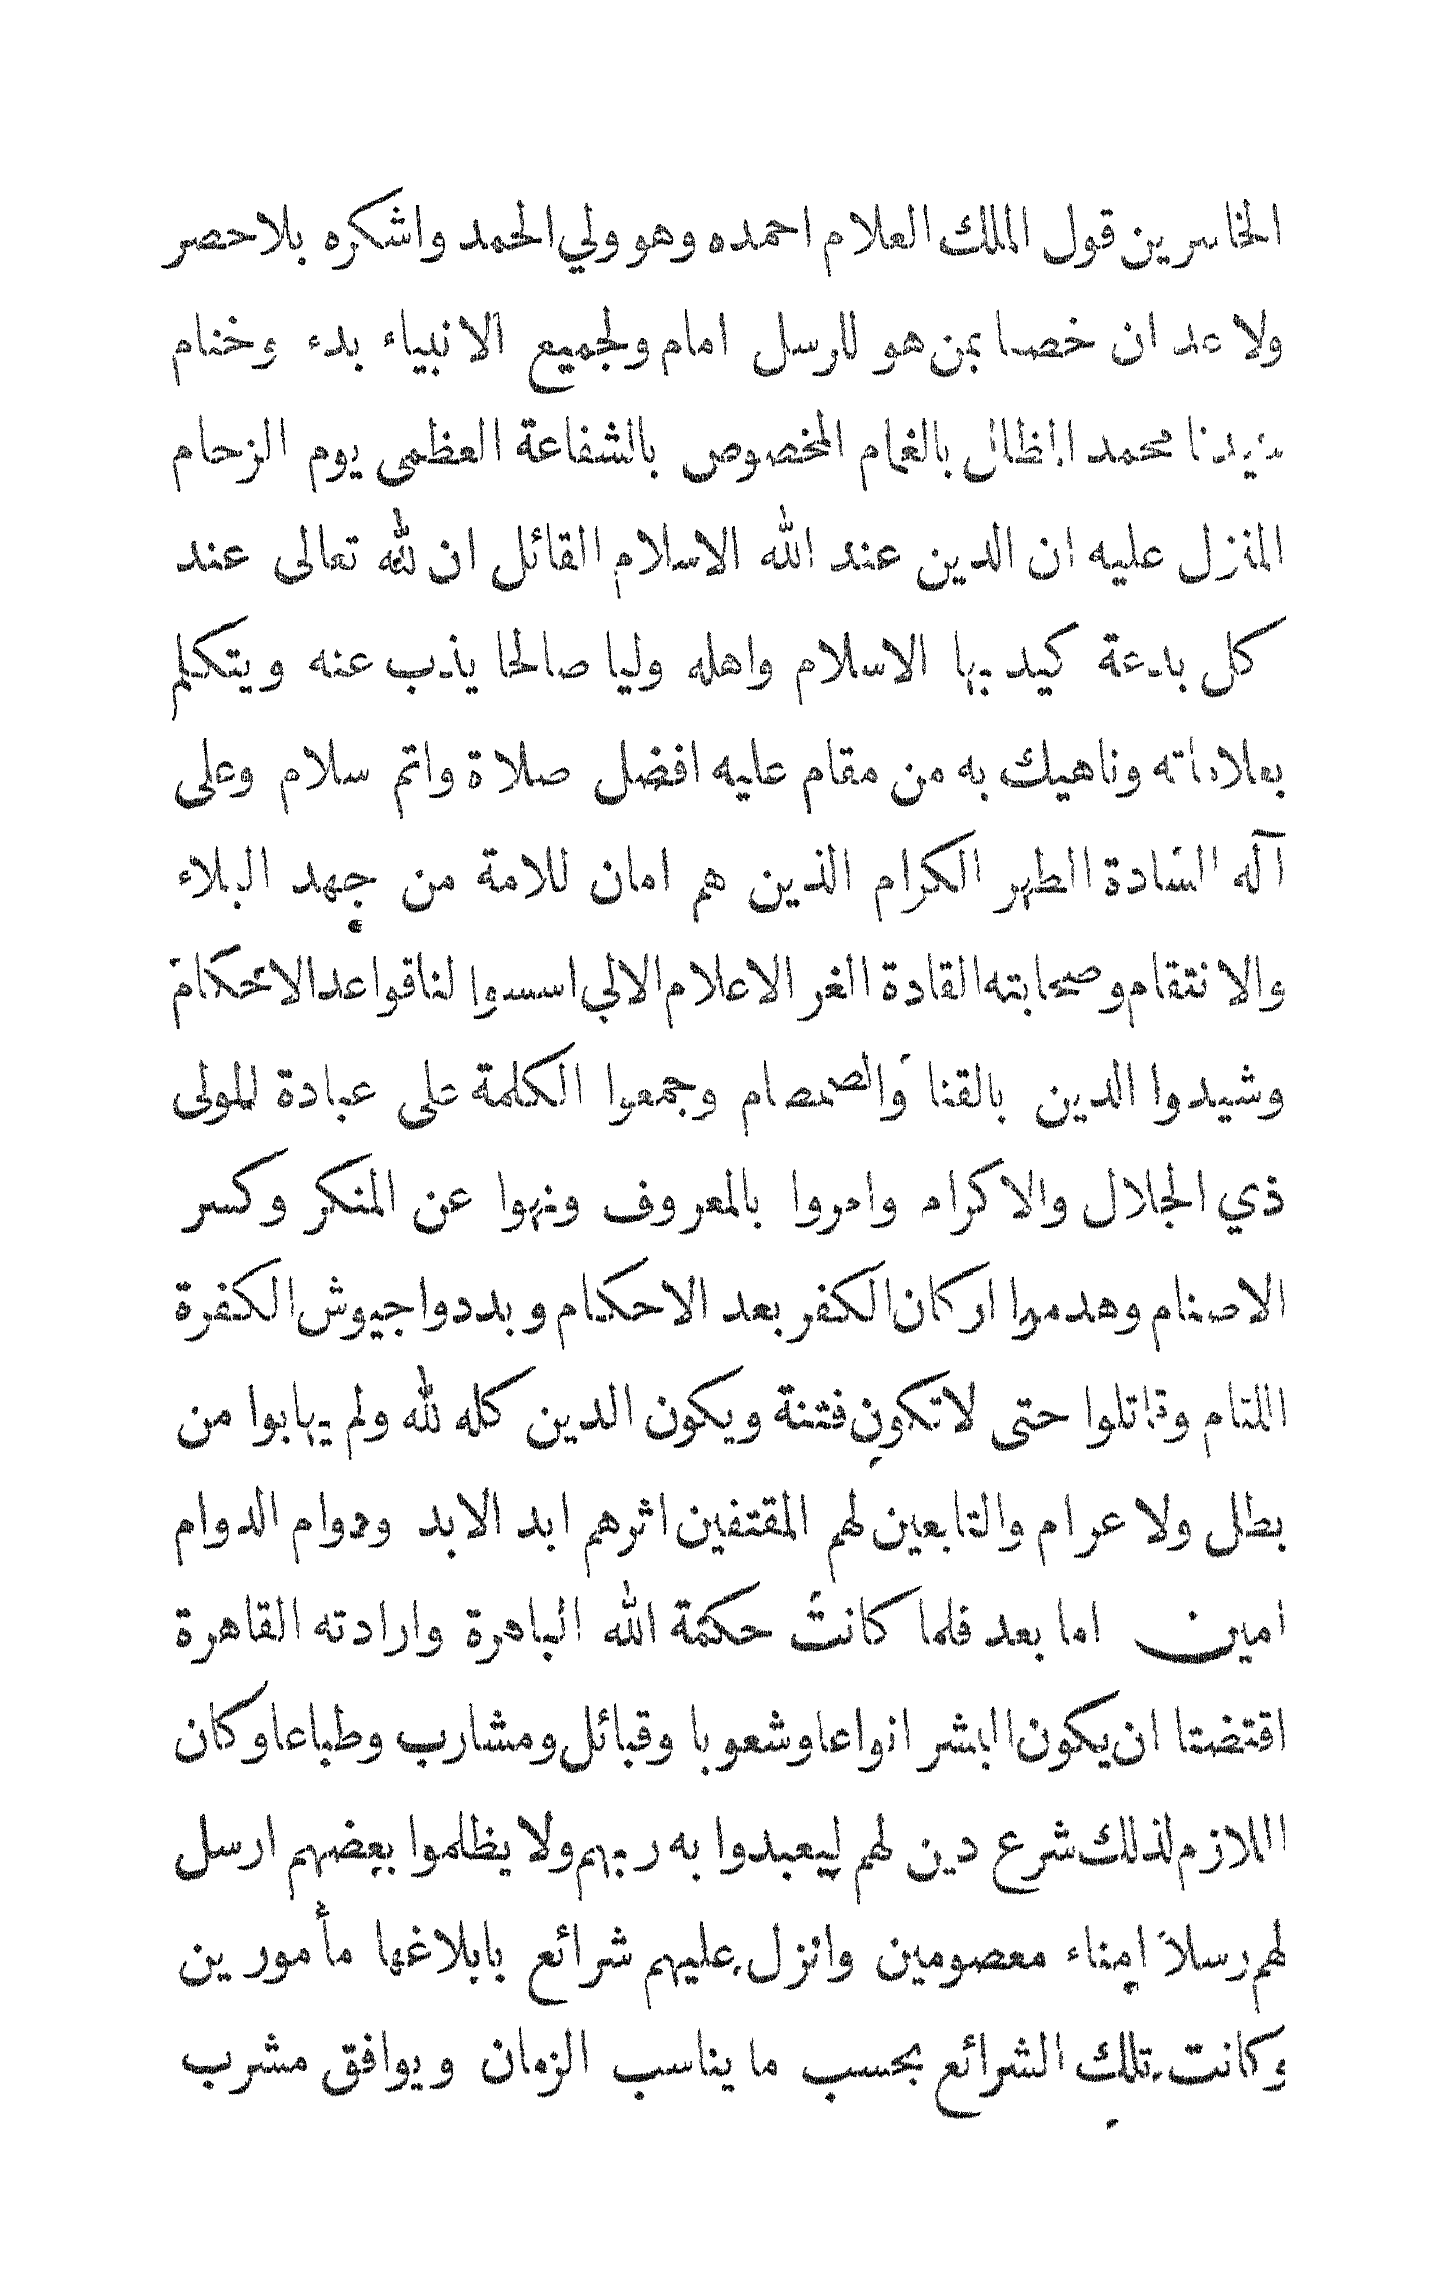 الخاسرين قول الملك العلام احمده وهو ولي الحمد واشكره بلا حصر
ولا عد ان خصنا بمن هو للرسل امام ولجميع الانبياء بدء وختام
سيدنا محمد المظلل بالغمام المخصوص بالشفاعة العظمى يوم الزحام
المنزل عليه ان الدين عند الله الاسلام القائل ان لله تعالى عند
كل بدعة كيد بها الاسلام واهله وليا صالحا يذب عنه ويتكلم
بعلاماته وناهيك به من مقام عليه افضل صلاة واتم سلام وعلى
آله السادة الطهر الكرام الذين هم امان للامة من جهد البلاء
والانتقام وصحابته القادة الغر الاعلام الالي اسسوا لنا قواعد الاحكام
وشيدوا الدين بالقنا والصمصام وجمعوا الكلمة على عبادة المولى
ذي الجلال والاكرام وامروا بالمعروف ونهوا عن المنكر وكسر
الاصنام وهدموا اركان الكفر بعد الاحكام وبددوا جيوش الكفرة
اللئام وقاتلوا حتى لا تكون فتنة ويكون الدين كله لله ولم يهابوا من
بطل ولا عرام والتابعين لهم المقتفين اثرهم ابد الابد ودوام الدوام
امين اما بعد فلما كانت حكمة الله الباهرة وارادته القاهرة
اقتضتا ان يكون البشر انواعا وشعوبا وقبائل ومشارب وطباعا وكان
اللازم لذلك شرع دين لهم ليعبدوا به ربهم ولا يظلموا بعضهم ارسل
لهم رسلاً امناء معصومين وانزل عليهم شرائع بابلاغها مأمورين
وكانت تلك الشرائع بحسب ما يناسب الزمان ويوافق مشرب